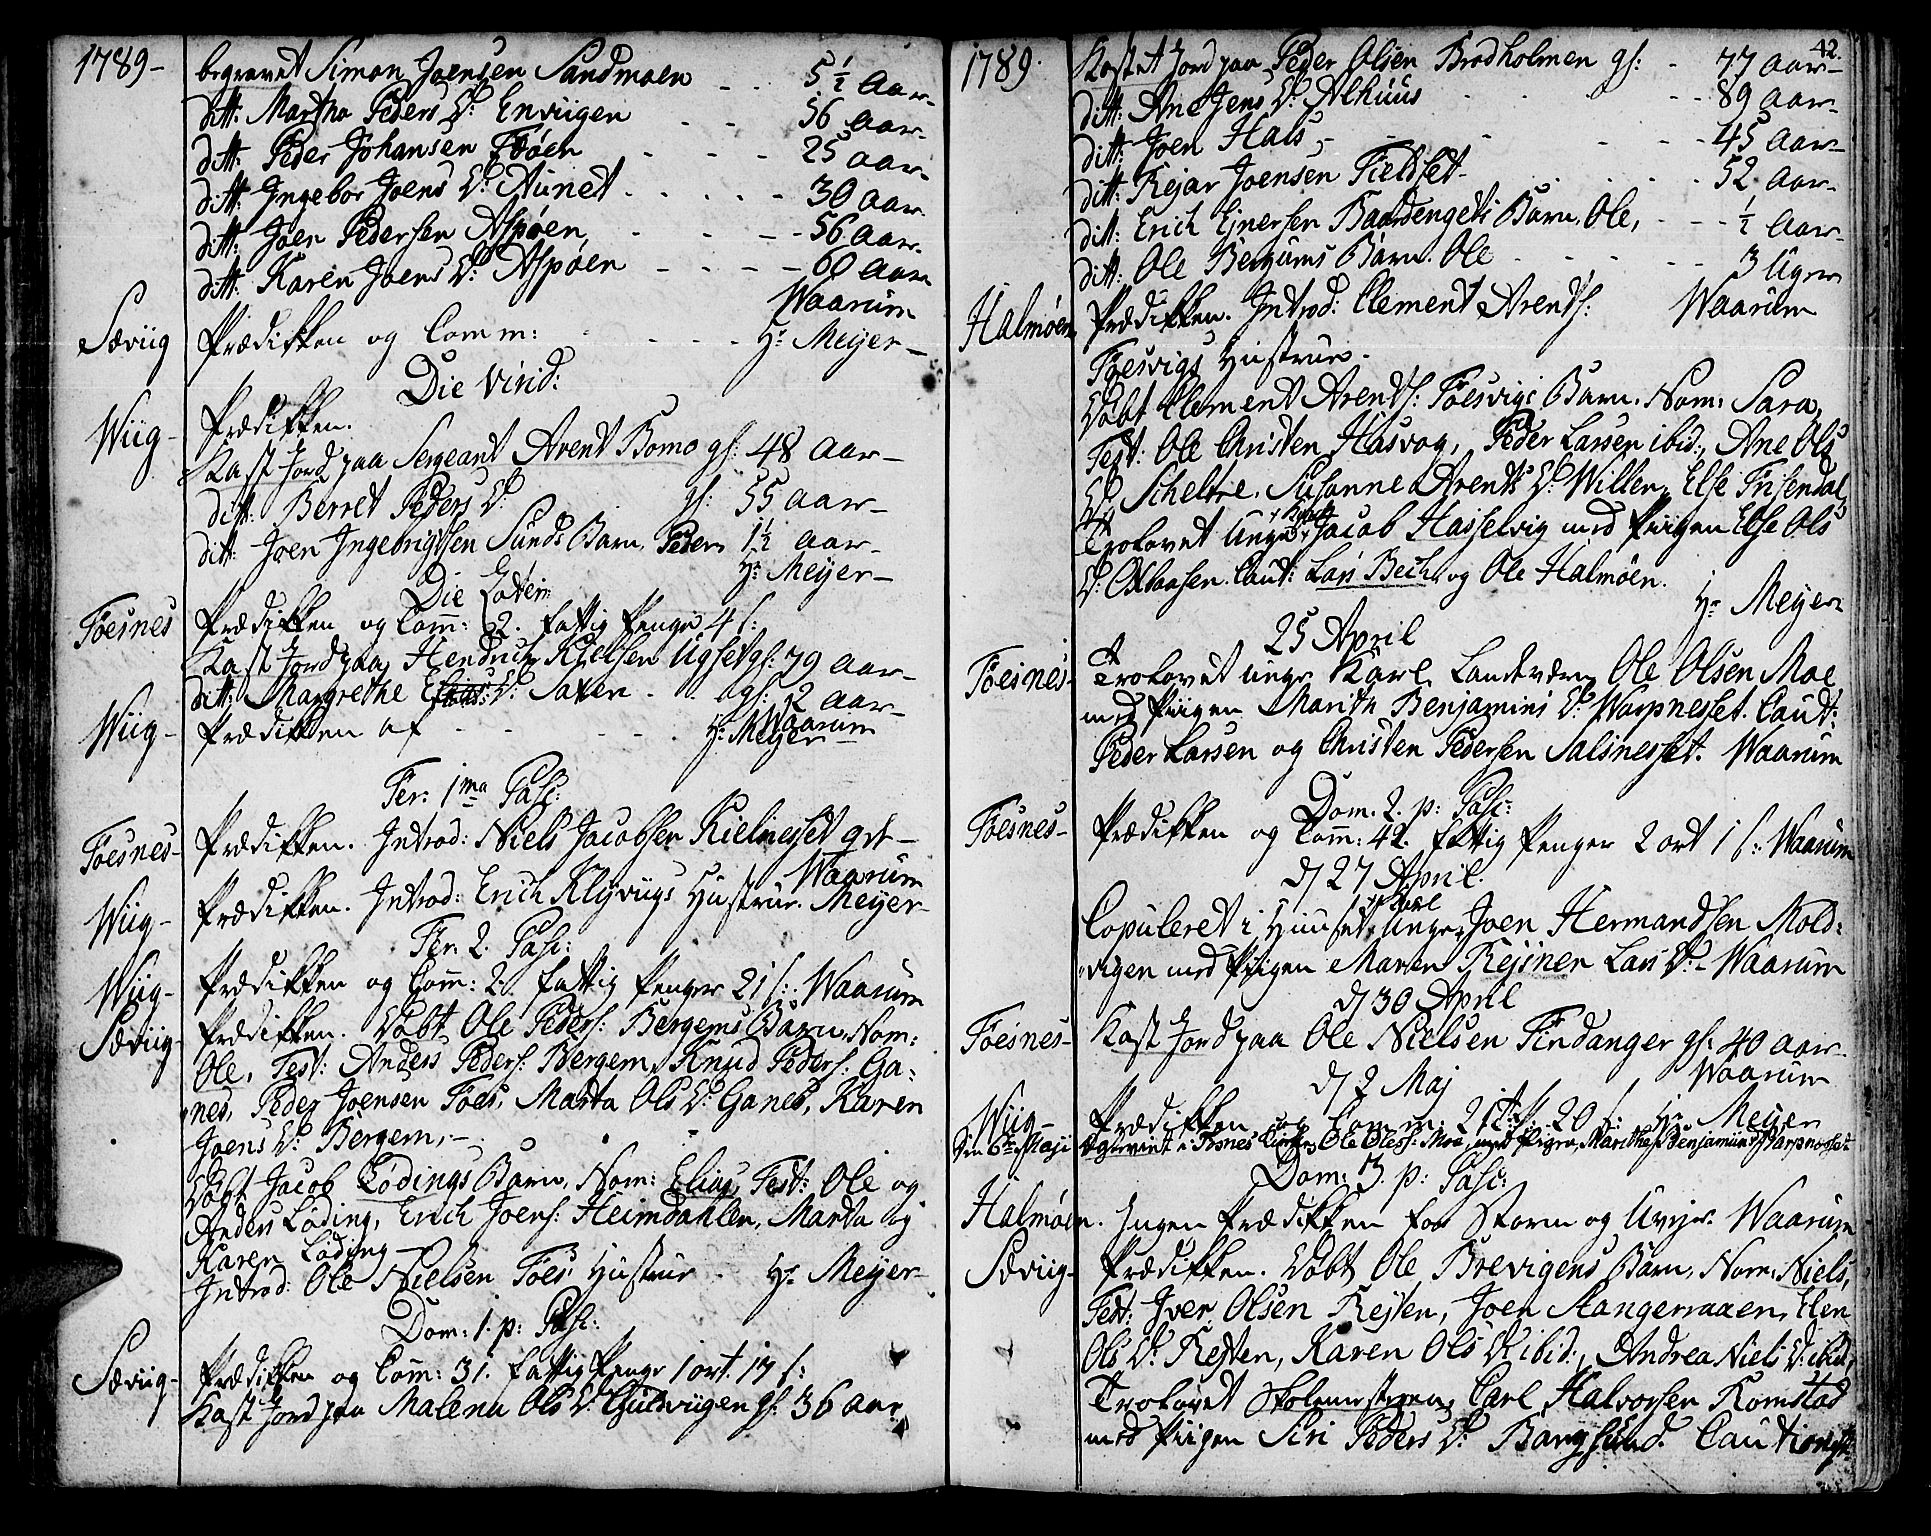 1789-
begravet Simon Joensen Sandmoen - - 5½ Aar-
ditt: Martha Peders D: Enviigen - - 56 Aar-
ditt: Peder Johansen Føøen - - - 25 aar-
ditt: Ingebor Joens D: Aunet - - - - 30 aar.
ditt: Joen Pedersen Aspøen, - - - - 56 aar.
ditt: Karen Joens D: Aspøen - - - - 60 aar
Waarum
Sæviig Prædikken og Comm: - - - Hr Meijer-
Die Virid:
Wiig- Prædikken.
Kast Jord paa Sergeant Arent Bomo gl: 48 aar-
ditt: Berret Peders D: gl: 55 aar-
ditt: Joen Ingebrigtsen Sunds Barn, Peder 1½ aar-
Hr Meijer-
Die Eodem
Foesnes Prædikken og Comm: 62. fattig Penge 4 s:
Kast Jord paa Hendrich Kielsen Ugset gl: 79 aar-
ditt: Margrethe D: Saxen - . gl: 2 aar-
Wiig- Prædikken af - - - - - Hr Meijer Waarum
Fer: 1ma Pasc:
Foesnes- Prædikken. Introd: Niels Jacobsen Kielnesset qvt-
Waarum
Wiig- Prædikken. Introd: Erich Klijviigs Hustrue. Meijer-
Fer: 2. Pasc:
Wiig- Prædikken og Com: 2. fattig Penger 21 s: Waarum
Sæviig- Prædikken. Døbt Ole Peders: Bergems Barn, Nom:
Ole, Test: Anders Peders: Bergem, Knud Peders: Ga-
nes, Peder Joensen Foes, Marta Ols D: Ganes, Karen
Joens D: Bergem,-
Døbt Jacob Lødings Barn, Nom: Elias, Test: Ole og
Anders Løding, Erich Joens: Heimdahlen, Marta og
Karen Løding-
Introd: Ole Nielsen Foes Hustrue - Hr Meijer-
Dom: 1. p: Pasc:
Sæviig- Prædikken og Com: 31. fattig Penge 1 ort. 17 s:
Kast Jord paa Malena Ols D: Guldviigen gl: 36 aar
42.
1789.
Kastet Jord paa Peder Olsen Brodholmen gl: - 77 aar-
ditt: Ane Jens D: Alhuus - - - 89 aar-
ditt: Joen Hals, - - - - 45 aar-
ditt: Rejar Joensen Fieldset - - - - 52 aar-
ditt: Erich Ejnersen Baardengets Barn, Ole, - - ½ aar-
ditt: Ole Bergums Barn. Ole - - - - 3 Uger
Halmøen Prædikken. Introd: Clement Arents: Waarum
Foesvigs Hustrue.
Døbt Clement Arents: Foesvigs Barn. Nom: Sara,
Test: Ole Christen Hasvog, Peder Larsen ibid:, Ane Ols
D: Scheltre, Susanne Arents D: Willen, Else Frisendal,
Trolovet Unge Karl Jacob Hasselvig med Piigen Else Ols
D: Oxbaasen. Caut: Lars Bech, og Ole Halmøen.
Hr Meijer
25 April
Foesnes- Trolovet unge Karl, Landværn Ole Olsen Moe
med Piigen Marith Benjamins D: Warpnesset. Caut:
Peder Larsen og Christen Pedersen Salsnesset. Waarum
Dom: 2. p: Pasc:
Foesnes- Prædikken og Com: 42. fattig Penger 2 ort 1 s: Waarum
D 27 April.
Copuleret i Huuset, Unge Karl Joen Hermandsen Mold-
vigen med Piigen Maren Rejsner Lars D:- Waarum
D 30 April
Foesnes- Kast Jord paa Ole Nielsen Findanger gl: 40 aar.
Waarum
D 2 Maj
Wiig- Prædikken og Comm: 20 s: Hr Meijer
Din 6te Maji Egteviet i Fosnes Kirke, Ole Oless: Moe, med Pigen, Marithe Benjamins: Varpnesset
Dom: 3. p: Pasc:
Halmøen. Ingen Prædikken for Storm og Uvejr. Waarum
Sæviig- Prædikken. Døbt Ole Brevigens Barn, Nom: Niels,
Test: Iver Olsen Rejten, Joen Stangerraaen, Elen
Ols D: Rejten, Karen Ols D: ibid:, Andrea Niels D: ibid,
Trolovet Skolemesteren, Carl Halvorsen Romstad
med Piigen Siri Peders D: Bangsund. Caution